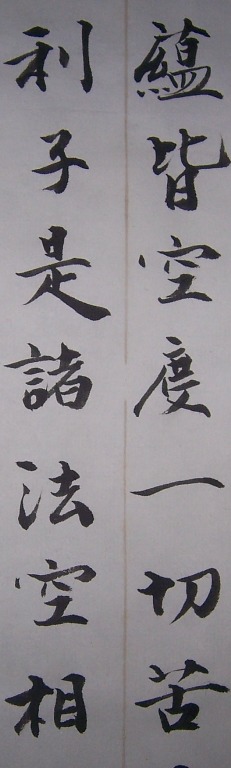 蘊皆空度一切苦
利子是諸法空相